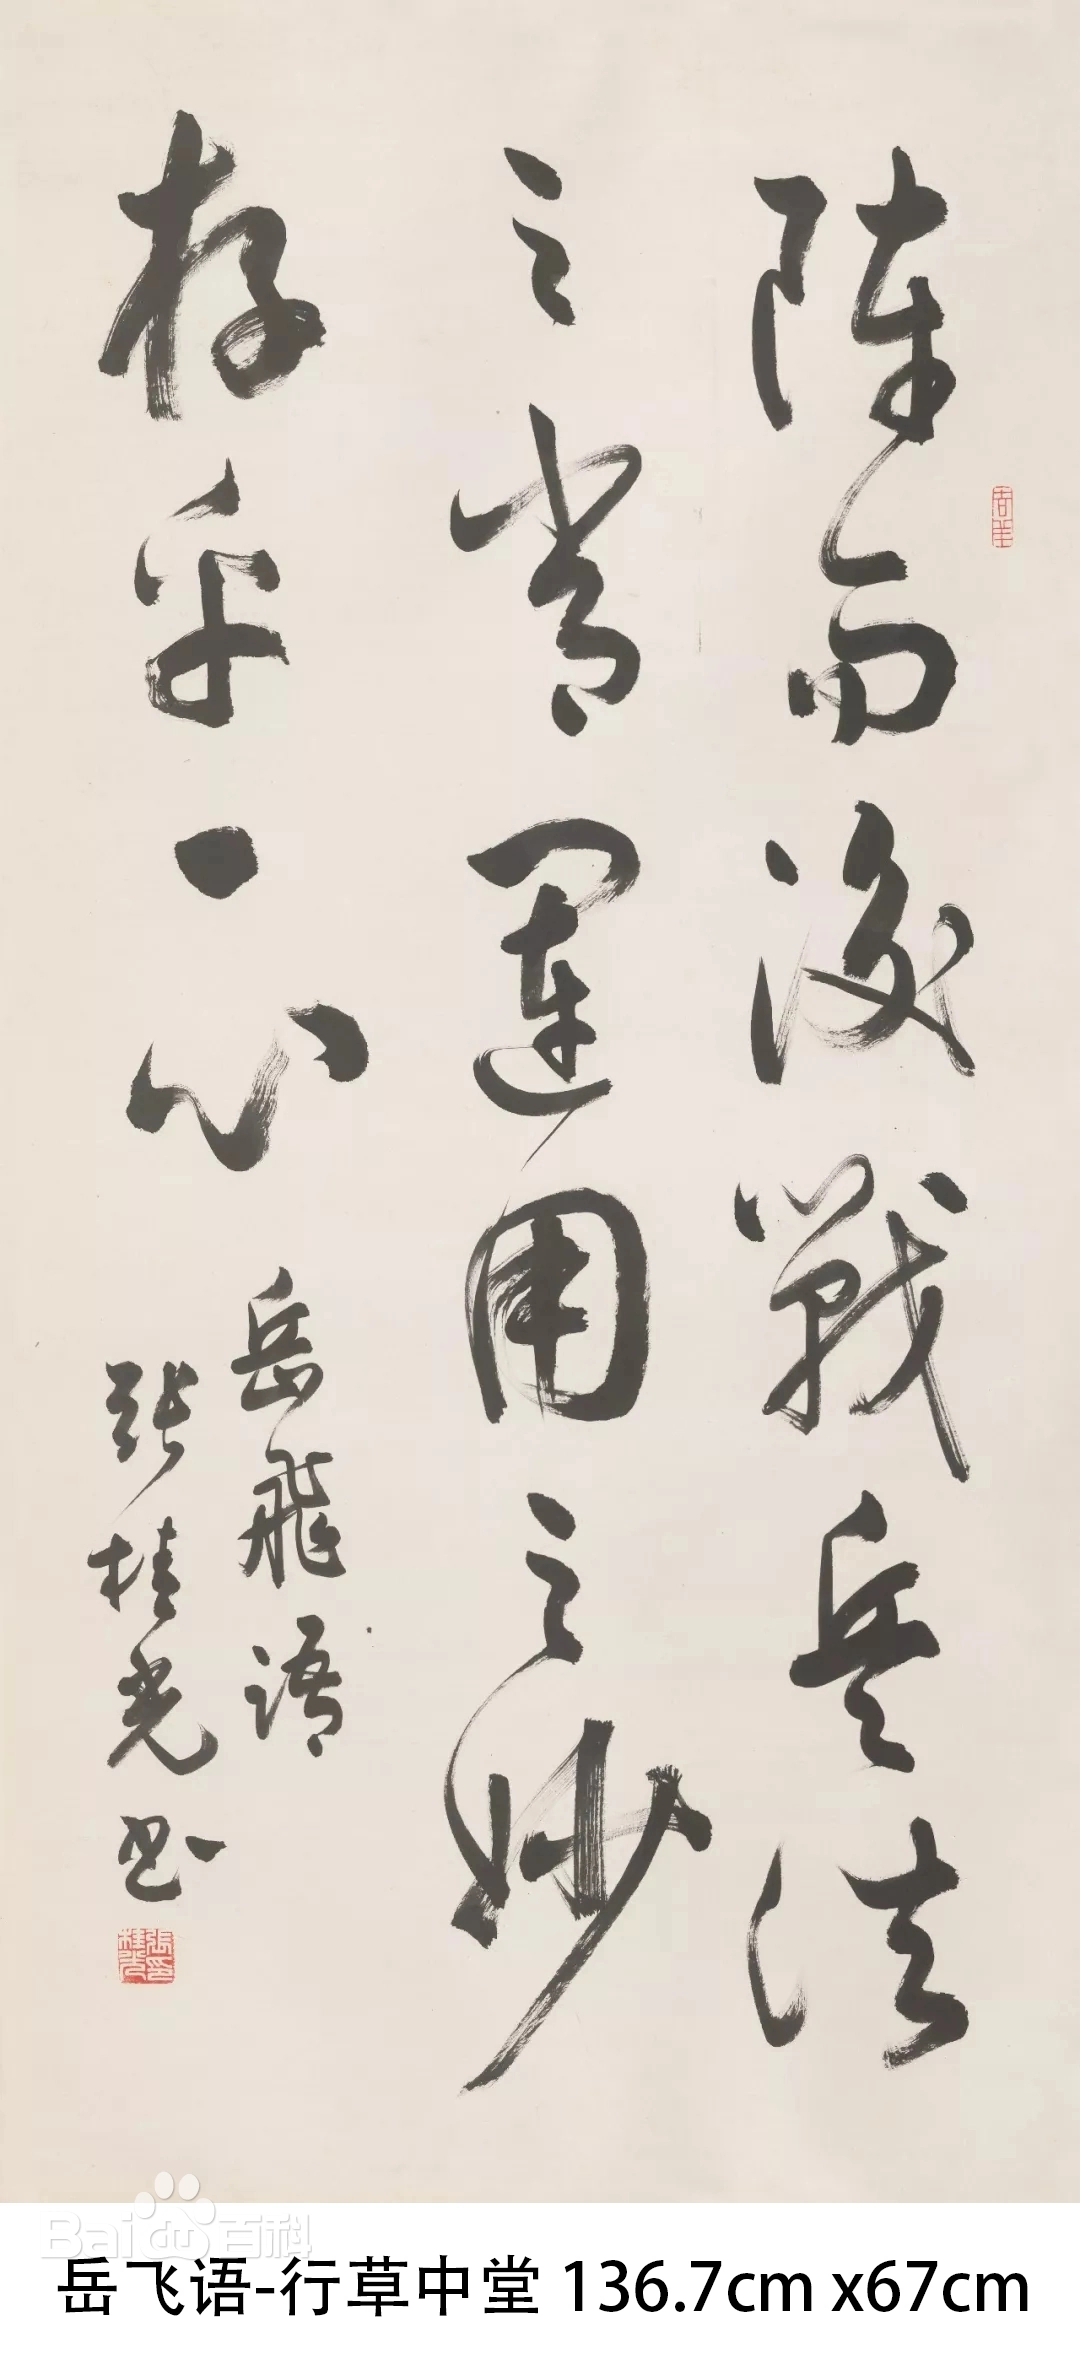 陣而後戰兵法
之常運用之妙
存乎一心
岳飛語
張桂光书
張桂光印
Baidu百科
岳飞语-行草中堂 136.7cm x67cm